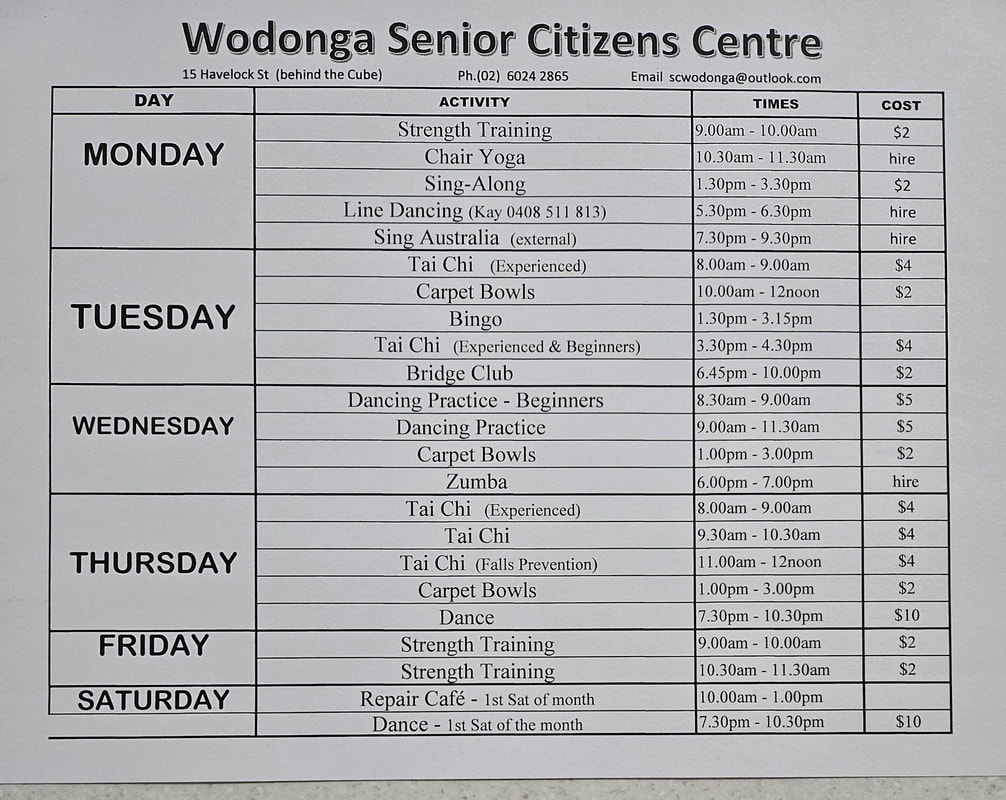 Wodonga Senior Citizens Centre
15 Havelock St (behind the Cube) Ph.(02) 6024 2865 Email scwodonga@outlook.com
DAY ACTIVITY TIMES COST
MONDAY
Strength Training 9.00am - 10.00am $2
Chair Yoga 10.30am - 11.30am hire
Sing-Along 1.30pm - 3.30pm $2
Line Dancing (Kay 0408 511 813) 5.30pm - 6.30pm hire
Sing Australia (external) 7.30pm - 9.30pm hire
TUESDAY
Tai Chi (Experienced) 8.00am - 9.00am $4
Carpet Bowls 10.00am - 12noon $2
Bingo 1.30pm - 3.15pm
Tai Chi (Experienced & Beginners) 3.30pm - 4.30pm $4
Bridge Club 6.45pm - 10.00pm $2
WEDNESDAY
Dancing Practice - Beginners 8.30am - 9.00am $5
Dancing Practice 9.00am - 11.30am $5
Carpet Bowls 1.00pm - 3.00pm $2
Zumba 6.00pm - 7.00pm hire
THURSDAY
Tai Chi (Experienced) 8.00am - 9.00am $4
Tai Chi 9.30am - 10.30am $4
Tai Chi (Falls Prevention) 11.00am - 12noon $4
Carpet Bowls 1.00pm - 3.00pm $2
Dance 7.30pm - 10.30pm $10
FRIDAY
Strength Training 9.00am - 10.00am $2
Strength Training 10.30am - 11.30am $2
SATURDAY
Repair Café - 1st Sat of month 10.00am - 1.00pm
Dance - 1st Sat of the month 7.30pm - 10.30pm $10